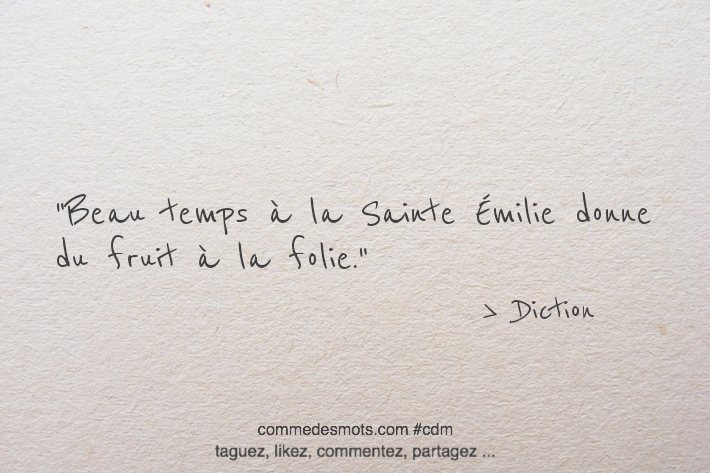 "Beau temps à la Sainte Émilie donne
du fruit à la folie."
> Diction
commedesmots.com #cdm
taguez, likez, commentez, partagez ...